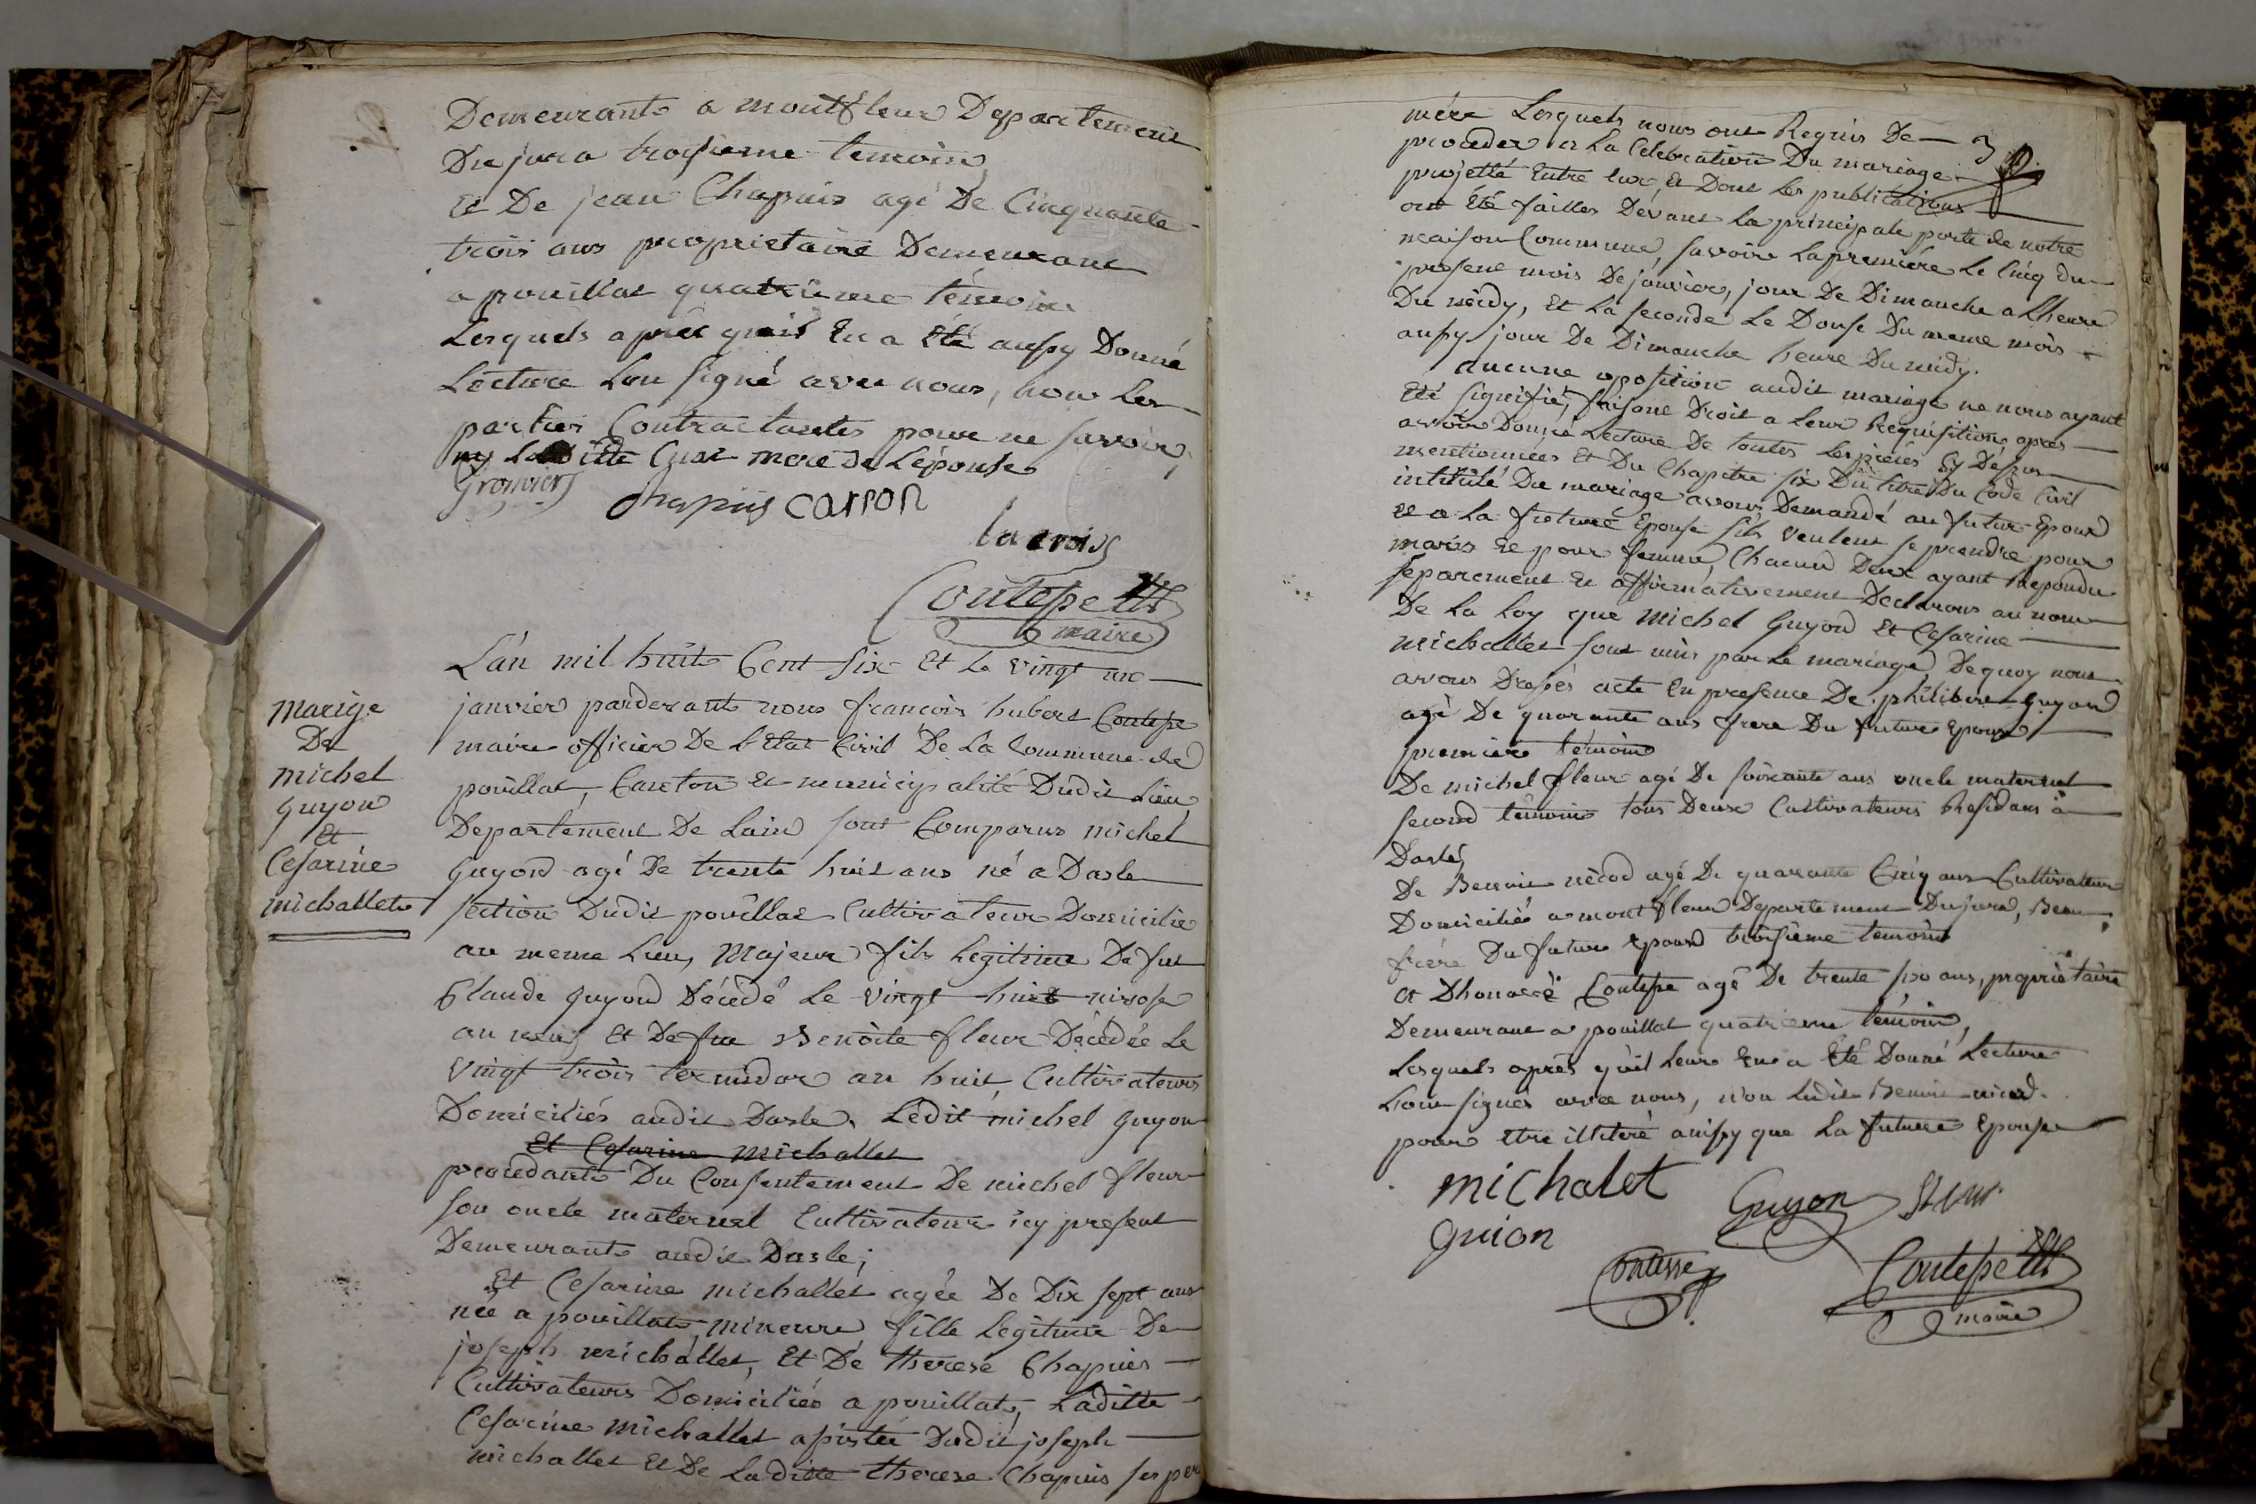 Demeurants a montfleur Departement
Du jura troisieme temoin,
et De jean Chapuis agé De Cinquante
trois ans proprietaire Demeurant
a pouillat quatrieme témoin
Lesquels aprèx quil En a Eté aussy Donné
Lecture Lon signé avec nous, non Les
parties Contractantes pour ne savoir,
ny Laditte Cusi mere De L'épouse
Chapuis carron
lacroix
Coutisse
maire
marige
De
michel
guyon
Et
Cesarine
michallet
L'an mil huit Cent six Et Le vingt un
janvier pardevant nous francois hubert Contesse
maire officier De L'Etat Civil De La Commune de
pouillat, Canton Et municipalité Dudit Lieu
Departement De Lain sont Comparus michel
guyon agé De trente huit ans né a Dasle
section Dudit pouillat Cultivateur Domicilié
au meme Lieu, Majeur fils Legitime De fut
Claude guyon Décédé Le vingt huit nivose
an neuf Et De fue Benoite fleur Décédée Le
vingt trois termidor an huit, Cultivateurs
Domiciliés audit Dasle. Ledit michel guyon
Et Cesarine michallet
procedante Du Consentement De michel fleur
son oncle maternel Cultivateur icy present
Demeurants audit Dasle;
Et Cesarine michallet agée De Dix sept ans
née a pouillat, mineure fille Legitime De
joseph michallet, Et De therese Chapuis
Cultivateurs Domiciliés a pouillat, Laditte
Cesarine michallet asistée Dudit joseph
michallet Et De Laditte therese Chapuis ses per
3
mére Lesquels nous ont Requis De
proceder a La Celebration Du mariage
projetté Entre Eux, Et Dont Les publications
ont Eté faittes Dévant La principale porte de notre
maison Commune, savoir La première Le Cinq du
present mois De janvier, jour De Dimanche a Lheure
Du midy, Et La seconde Le Douse Du meme mois
aussy jour De Dimanche heure Du midy.
aucune oposition audit mariage ne nous ayant
Eté signifié, faisant Droit a Leur Requisition apres
avoir Donné Lecture De toutes Les pieces Cy Déssus
mentionnées Et Du Chapitre six Du titre Du Code Civil
intitulé Du mariage avons Demandé au futur Epoux
et a La future Epouse s'ils veulent se prendre pour
maris Et pour femme, Chacun Deux ayant Repondu
séparement Et affirmativement Declarons au nom
De La Loy que Michel Guyon Et Cesarine
michallet sont unis par Le mariage De quoy nous
avons Dressés acte En presence De philibert guyon
agé De quarante ans frere Du future Epoux
premiere témoin
De michel fleur agé De soixante ans oncle maternel
second témoin tous Deux Cultivateurs Residans à
Dasle,
De Benoit nicod agé De quarante Cinq ans Cultivateur
Domicilié a montfleur Departement Du jura, Beau
frére Du future Epoux troisieme temoin
et Dhonoré Contesse agé De trente six ans, proprietaire
Demeurant a pouillat quatrieme témoin,
Lesquels aprés qu'il Leur En a Eté Donné Lecture
L'ont signés avec nous, non Ledit Benoit nicod
pour Etre illiteré aussy que La future Epouse
michalet
Guyon
fleur
guion
Contesse
Coutisse
maire